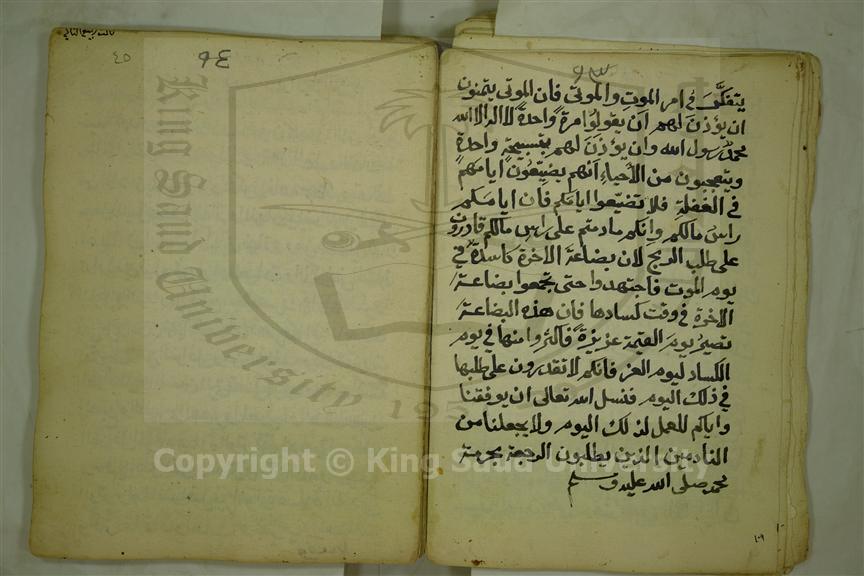 ٩٣
يتفكَّر في امر الموت والموتى فان الموتى يتمنون
ان يؤذنَ لهم اَن يقولوُا مرةً واحدةً لا اله الا الله
محمدٌ رسول الله وان يؤذنَ لهم بتسبيحةٍ واحدةٍ
ويتعجبون من الأحياءِ اَنهم يضيّعُونَ ايامهم
في الغفلةِ فلا تضيّعوا ايامكم فان ايامكم
راسَ مالكم وانكم مادمتم على راس مالكم قادرون
على طلب الربح لان بضاعة الآخرة كاسدةٌ في
يوم الموت فاجتهدوا حتى تجمعوا بضاعة
الآخرة في وقت كسادها فان هذه البضاعة
تصيرُ يومَ القيمة عزيزةً فاكثروا منها في يوم
الكساد ليوم العز فانكم لا تقدرون على طلبها
في ذلك اليوم فنسل الله تعالى ان يوفقنا
واياكم للعمل لذلك اليوم ولا يجعلنا من
النادمين الذين يطلبون الرجعة بحرمة
محمد صلى الله عليه وسلم
٩٤
٤٥
King Saud University
195
Copyright © King Saud University